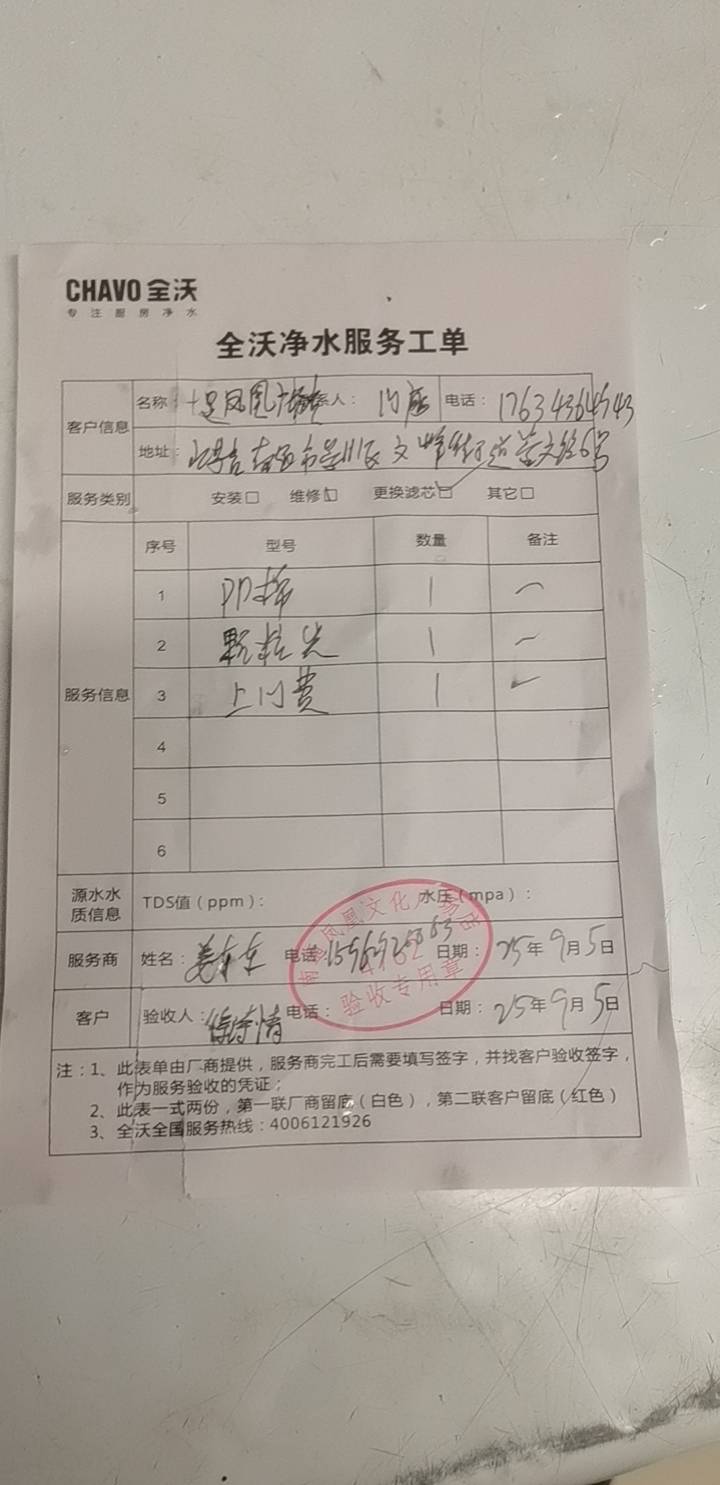 CHAVO 全沃
专注厨房净水
全沃净水服务工单
客户信息 名称： 凤凰广场 联系人： 门店 电话： 17634364543
地址： 文峰街道 6号
服务类别 安装□ 维修□ 更换滤芯□ 其它□
序号 型号 数量 备注
服务信息
1 PP棉 1 一
2 颗粒炭 1 一
3 上门费 1 一
4
5
6
源水水质信息 TDS值（ppm）： 水压（mpa）：
服务商 姓名： 姜东东 电话： 日期： 25年9月5日
客户 验收人： 电话： 日期： 25年9月5日
凤凰文化广场店
验收专用章
注：1、此表单由厂商提供，服务商完工后需要填写签字，并找客户验收签字，
作为服务验收的凭证；
2、此表一式两份，第一联厂商留底（白色），第二联客户留底（红色）
3、全沃全国服务热线：4006121926